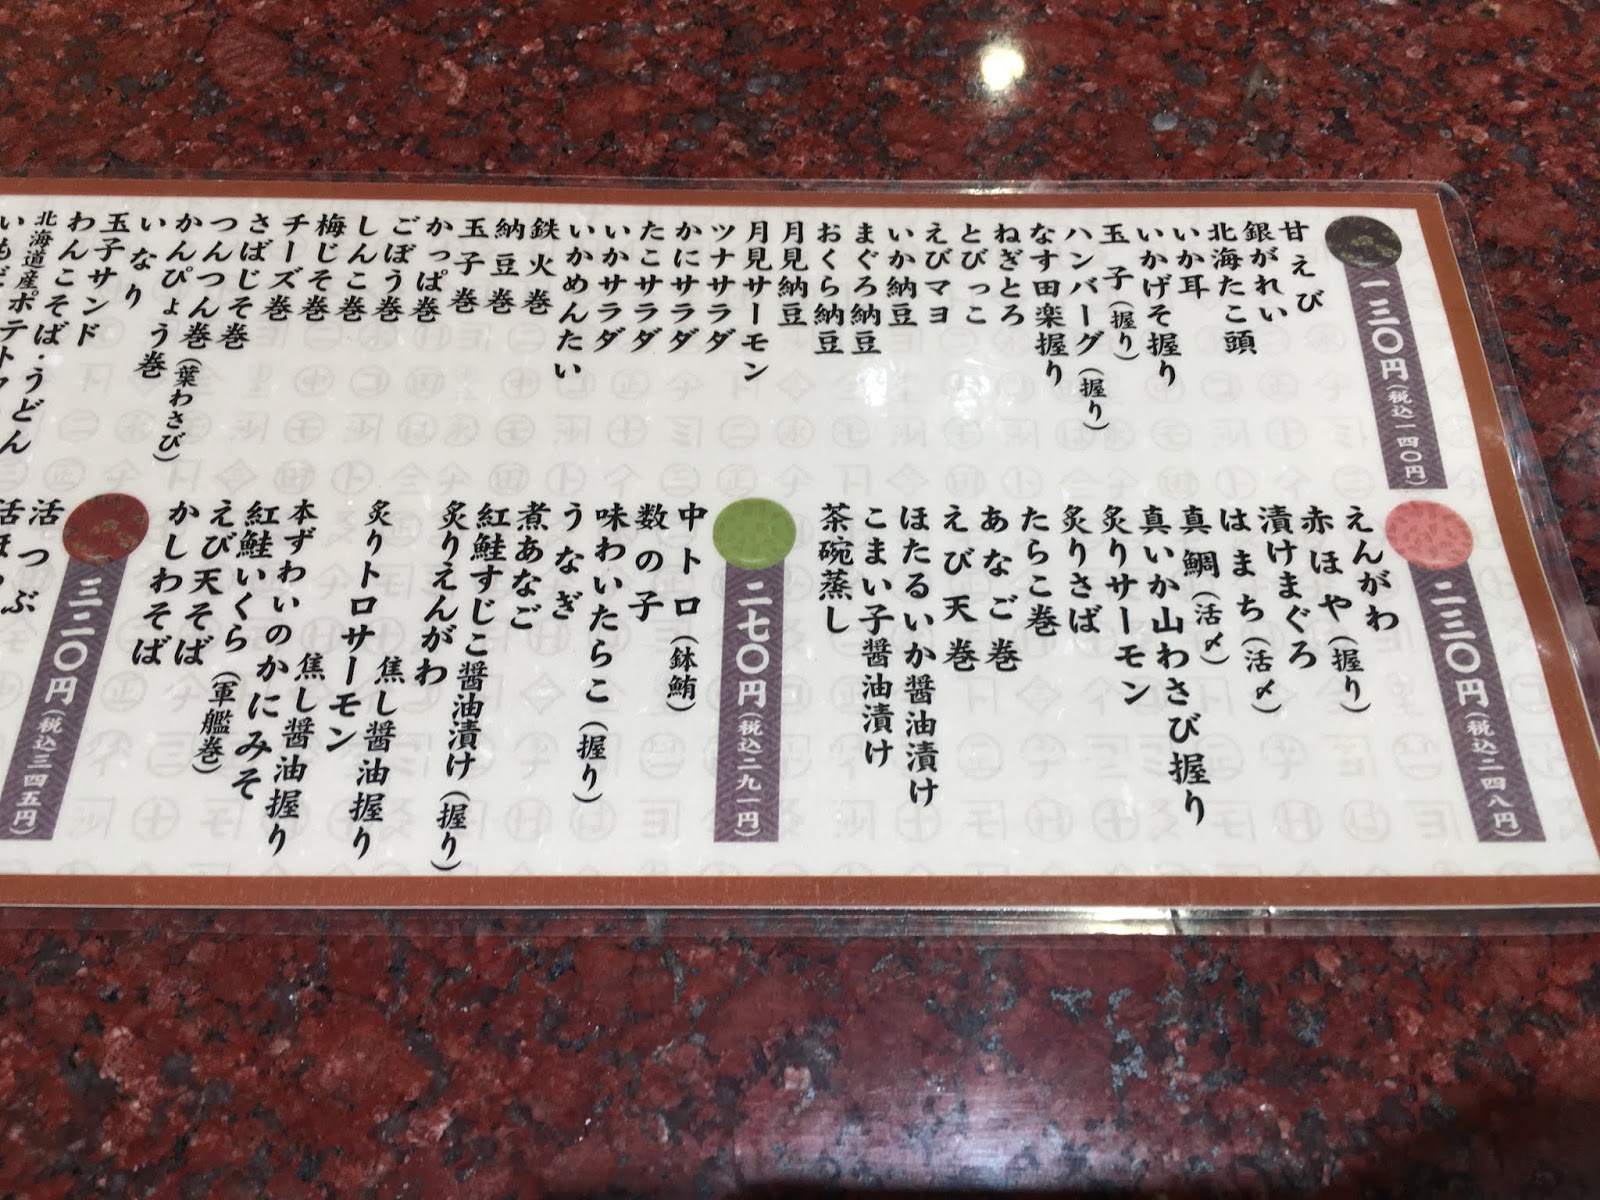 一三〇円(税込一四〇円)
甘えび
銀がれい
北海たこ頭
いか耳
いかげそ握り
玉子(握り)
ハンバーグ(握り)
なす田楽握り
ねぎとろ
とびっこ
えびマヨ
いか納豆
まぐろ納豆
おくら納豆
月見納豆
月見サーモン
ツナサラダ
かにサラダ
たこサラダ
いかサラダ
いかめんたい
鉄火巻
納豆巻
玉子巻
かっぱ巻
ごぼう巻
しんこ巻
梅じそ巻
チーズ巻
さばじそ巻
つんつん巻(葉わさび)
かんぴょう巻
いなり
玉子サンド
わんこそば・うどん
北海道産。ポテト
いも
二三〇円(税込二四八円)
えんがわ
赤ほや(握り)
漬けまぐろ
はまち(活〆)
真鯛(活〆)
真いか山わさび握り
炙りサーモン
炙りさば
たらこ巻
あなご巻
えび天巻
ほたるいか醤油漬け
こまい子醤油漬け
茶碗蒸し
二七〇円(税込二九一円)
中トロ(鉢鮪)
数の子
味わいたらこ(握り)
うなぎ
煮あなご
紅鮭すじこ醤油漬け(握り)
炙りえんがわ
焦し醤油握り
炙りトロサーモン
焦し醤油握り
本ずわいのかにみそ
紅鮭いくら(軍艦巻)
えび天そば
かしわそば
三二〇円(税込三四五円)
活つぶ
活ほっ